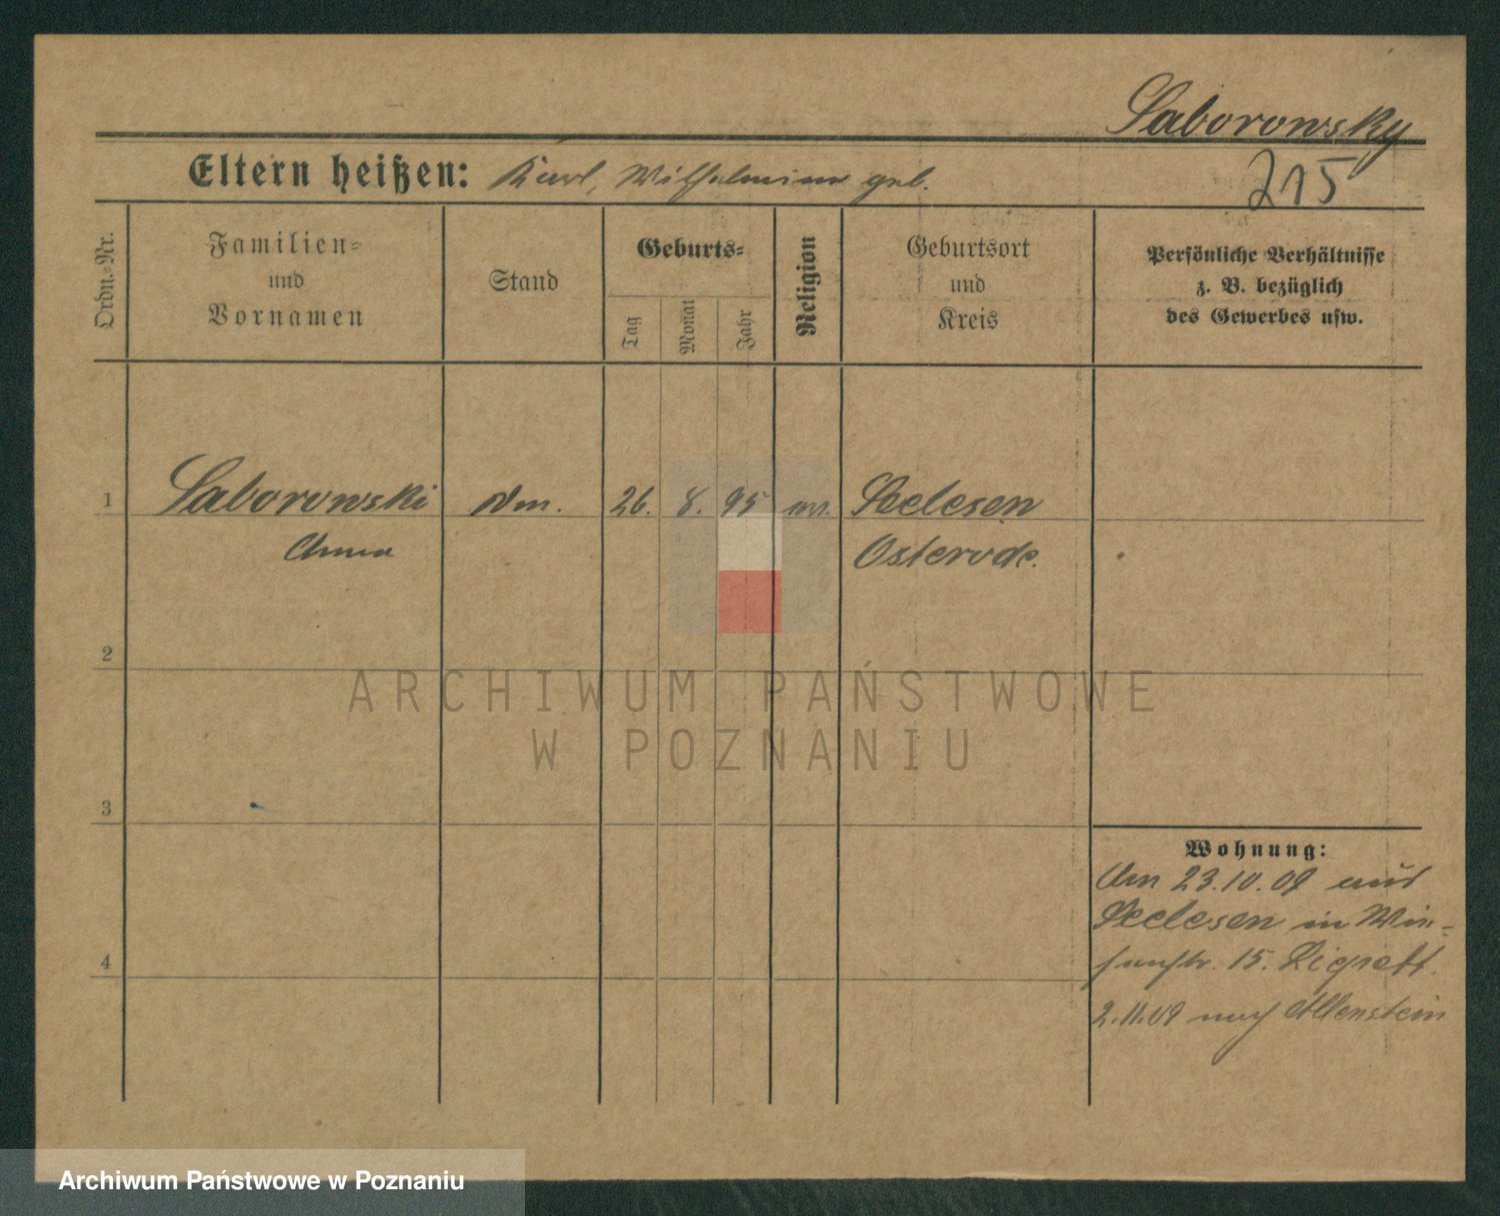 Saborowsky
Eltern heißen: Karl, Wilhelmine geb.
215
Ordn.=Nr.
Familien=
und
Vornamen
Stand
Geburts=
Tag
Monat
Jahr
Religion
Geburtsort
und
Kreis
Persönliche Verhältnisse
z. B. bezüglich
des Gewerbes usw.
1 Saborowski 26. 8. 95 Seelesen
Anna Osterode.
2
ARCHIWUM PAŃSTWOWE
W POZNANIU
3
Wohnung:
Am 23.10.09 aus
Seelesen in
15.
4
2.11.09 nach Allenstein
Archiwum Państwowe w Poznaniu